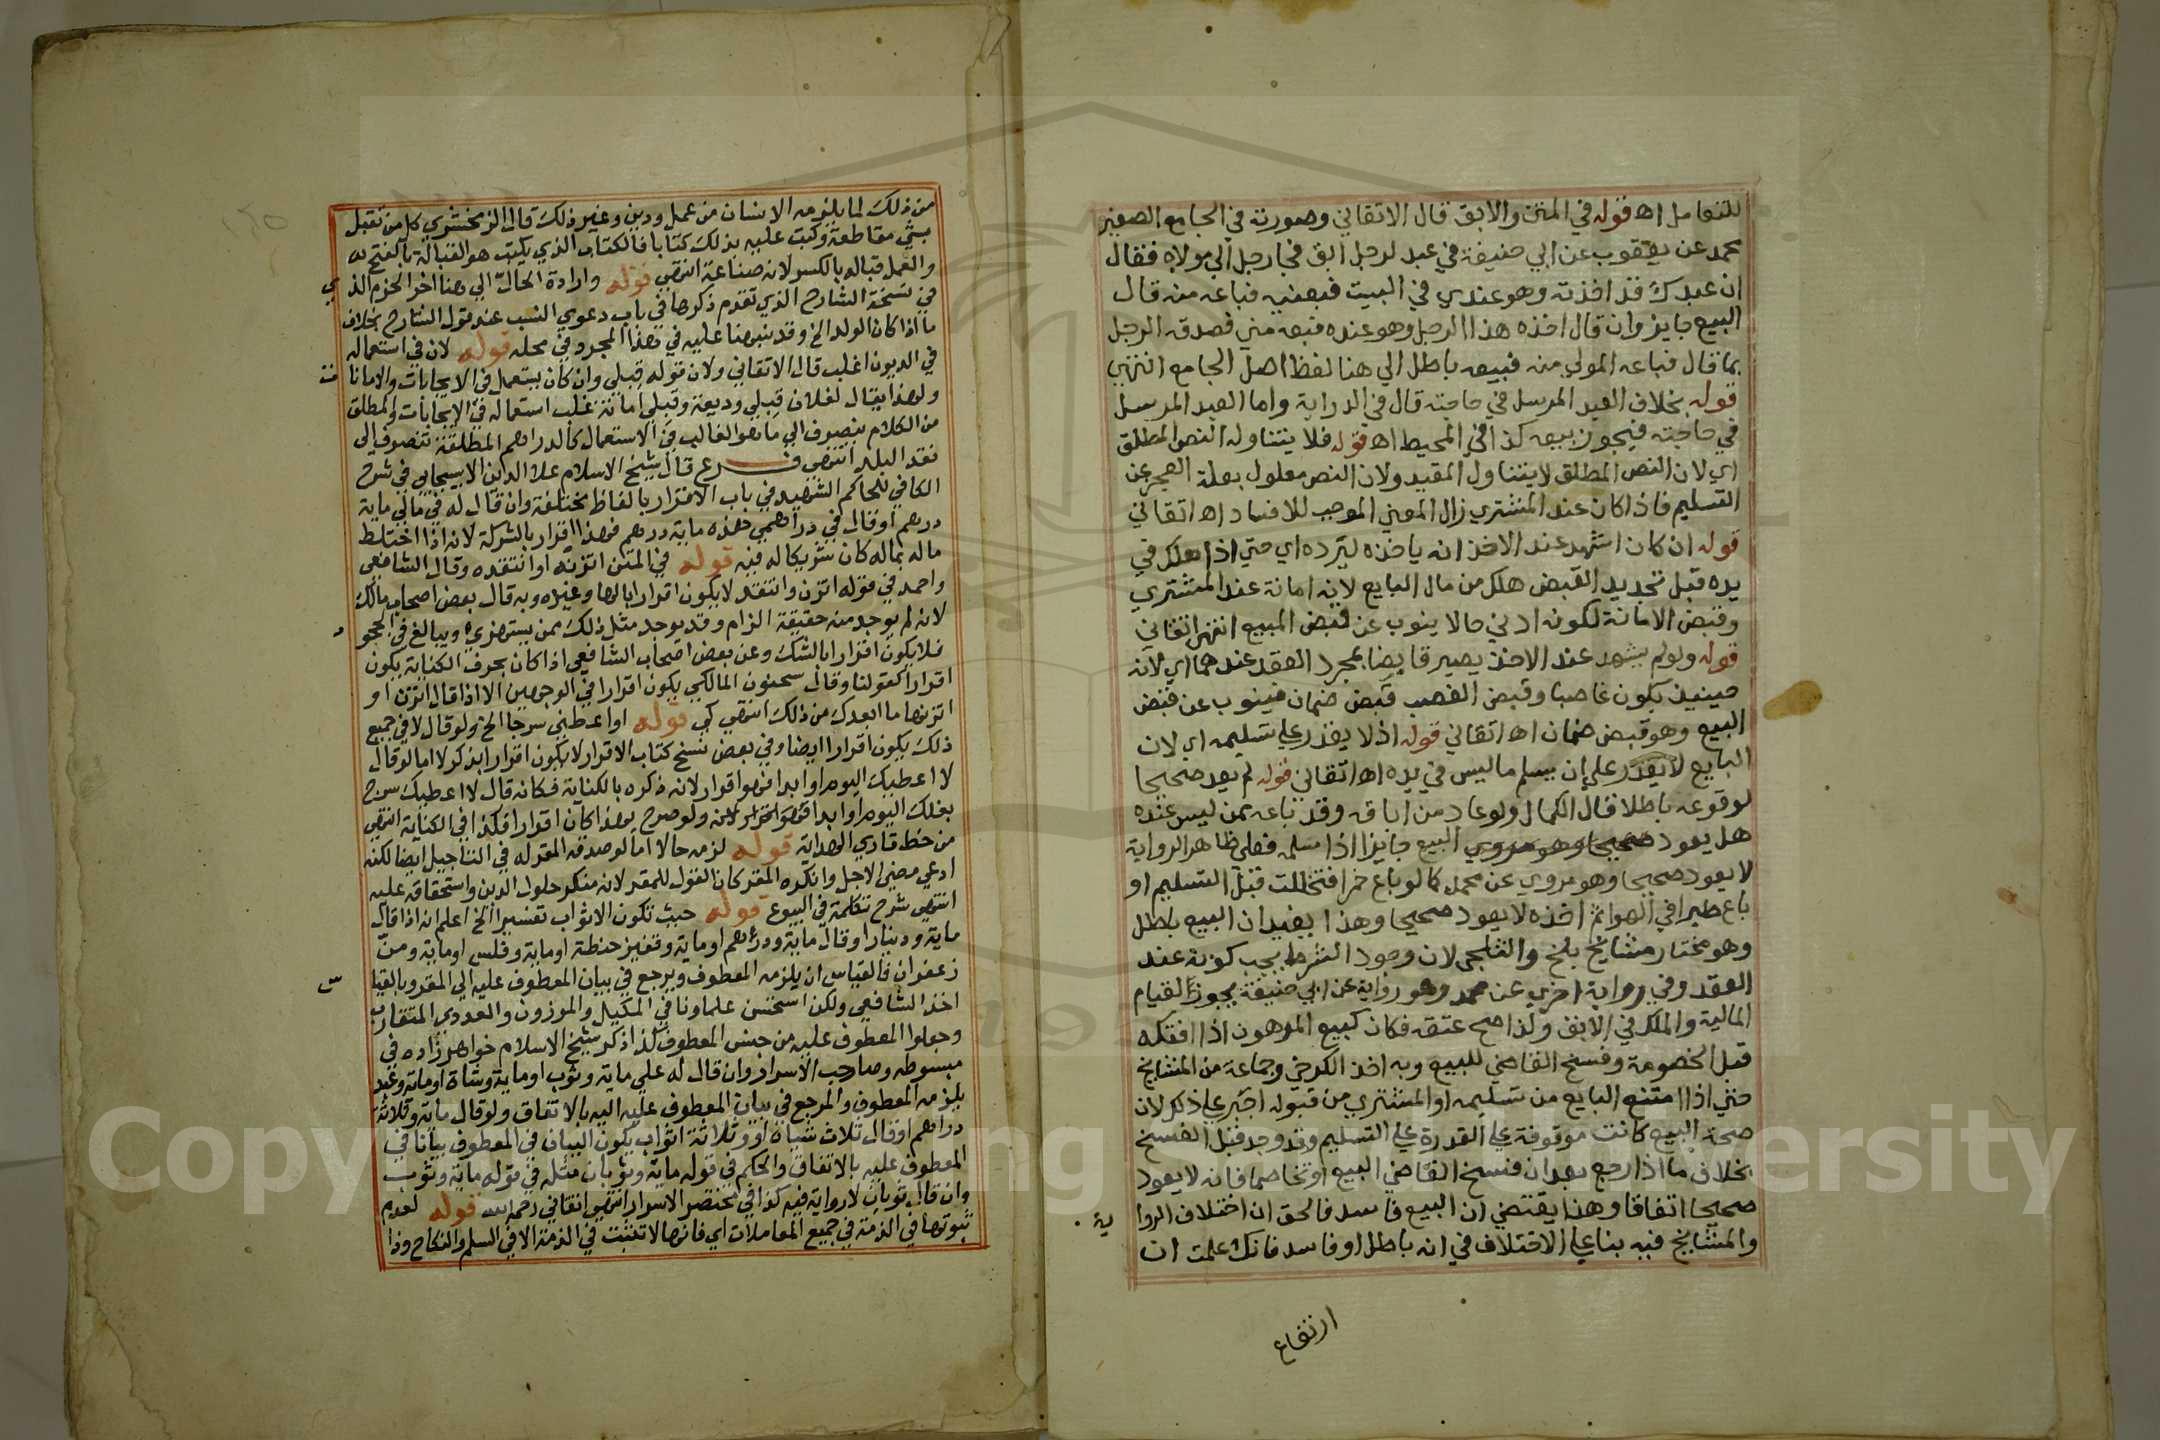 للتعامل اه قوله في المتن والابق قال الاتقاني وصورته في الجامع الصغير
محمد عن يعقوب عن ابي حنيفة في عبد لرجل ابق فجا رجل الي مولاه فقال
ان عبدك قد اخذته وهو عندي في البيت فبعنيه فباعه منه قال
البيع جايز وان قال اخذه هذا الرجل وهو عنده فبعه مني فصدقه الرجل
بما قال فباعه المولي منه فبيعه باطل الي هنا لفظ اصل الجامع انتهي
قوله بخلاف العبد المرسل في حاجته قال في الدراية واما العبد المرسل
في حاجته فيجوز بيعه كذا في المحيط اه قوله فلا يتناوله النص المطلق
اي لان النص المطلق لا يتناول المقيد ولان النص معلول بعلة العجز عن
التسليم فاذا كان عند المشتري زال المعني الموجب للافساد اه اتقاني
قوله ان كان اشهد عند الاخذ انه ياخذه ليرده اي حتي اذا هلك في
يده قبل تجديد القبض هلك من مال البايع لانه امانة عند المشتري
وقبض الامانة لكونه ادني حالا ينوب عن قبض المبيع انتهي اتقاني
قوله ولو لم يشهد عند الاخذ يصير قابضا بمجرد العقد عندهما اي لانه
حينيذ يكون غاصبا وقبض الغصب قبض ضمان فينوب عن قبض
البيع وهو قبض ضمان اه اتقاني قوله اذ لا يقدر علي تسليمه اي لان
البايع لا يقدر علي ان يسلم ما ليس في يده اه اتقاني قوله لم يعد صحيحا
لوقوعه باطلا قال الكمال ولو عاد من اباقه وقد باعه ممن ليس عنده
هل يعود صحيحا وهو مروي البيع جايزا اذا سلمه فعلي ظاهر الرواية
لا يعود صحيحا وهو مروي عن محمد كما لو باع خمرا فتخللت قبل التسليم او
باع طيرا في الهواء ثم اخذه لا يعود صحيحا وهذا يفيد ان البيع باطل
وهو مختار مشايخ بلخ والثلجي لان وجود الشرط يجب كونه عند
العقد وفي رواية اخري عن محمد وهو رواية عن ابي حنيفة يجوز لقيام
المالية والملك في الابق ولذا صح عتقه فكان كبيع المرهون اذا افتكه
قبل الخصومة وفسخ القاضي للبيع وبه اخذ الكرخي وجماعة من المشايخ
حتي اذا امتنع البايع من تسليمه او المشتري من قبوله اجبر علي ذلك لان
صحة البيع كانت موقوفة علي القدرة علي التسليم وقد وجد قبل الفسخ
بخلاف ما اذا رجع بعد ان فسخ القاضي البيع او تخاصما فانه لا يعود
صحيحا اتفاقا وهذا يقتضي ان البيع فاسد فالحق ان اختلاف الروا
ية
والمشايخ فيه بنا علي الاختلاف في انه باطل او فاسد فانك علمت ان
ارتفاع
من ذلك لما يلزمه الانسان من عمل ودين وغير ذلك قال الزمخشري كل من تقبل
بشي مقاطعة وكتب عليه بذلك كتابا فالكتاب الذي يكتب هو القبالة بالفتح له
والعمل قباله بالكسر لانه صناعة انتهي قوله وارادة الحال الي هنا اخر الخرم الذ
ي
في نسخة الشارح الذي تقدم ذكرها في باب دعوي النسب عند قول الشارح بخلاف
ما اذا كان الولد الخ وقد نبهنا عليه في هذا المجرد في محله قوله لان في استعماله
في الديون اغلب قال الاتقاني ولان قوله قبلي وان كان يستعمل في الايجابات والامانا
ت
ولهذا يقال لفلان قبلي وديعة وقبلي امانة غلب استعماله في الايجابات والمطلق
من الكلام ينصرف الي ما هو الغالب في الاستعمال كالدراهم المطلقة تنصرف الي
نقد البلد انتهي فرع قال شيخ الاسلام علا الدين الاسبيجابي في شرح
الكافي للحاكم الشهيد في باب الاقرار بالفاظ مختلفة وان قال له في مالي ماية
درهم او قال في دراهمي هذه ماية درهم فهذا اقرار بالشركة لانه اذا اختلط
ماله بماله كان شريكا له فيه قوله في المتن اتزنه او انتقده وقال الشافعي
واحمد في قوله اتزن وانتقد لا يكون اقرارا بالها وغيره وبه قال بعض اصحاب مالك
لانه لم يوجد منه حقيقة الزام وقد يوجد مثل ذلك ممن يستهزي ويبالغ في الجحو
د
فلا يكون اقرارا بالشك وعن بعض اصحاب الشافعي اذا كان بحرف الكناية يكون
اقرارا كقولنا وقال سحنون المالكي يكون اقرارا في الوجهين الا اذا قال اتزن او
اتزنها ما ابعدك من ذلك انتهي كي قوله او اعطني سرجا الخ ولو قال لا في جميع
ذلك يكون اقرارا ايضا وفي بعض نسخ كتاب الاقرار لا يكون اقرارا بذكر لا اما لو قال
لا اعطيك اليوم او ابدا فهو اقرار لانه ذكره بالكناية فكانه قال لا اعطيك سرج
بغلك اليوم او ابدا ولو صرح بهذا كان اقرارا فكذا في الكناية انتهي
من خط قاري الهداية قوله لزمه حالا اما لو صدقه المقر له في التاجيل ايضا لكنه
ادعي مضي الاجل وانكره المقر كان القول للمقر لانه منكر حلول الدين واستحقاقه عليه
انتهي شرح تكملة في البيوع قوله حيث تكون الاثواب تفسيرا الخ اعلم انه اذا قال
ماية ودينار او قال ماية ودرهم او ماية وقفيز حنطة او ماية وفلس او ماية ومن
زعفران فالقياس ان يلزمه المعطوف ويرجع في بيان المعطوف عليه الي المقر وبالقيا
س
اخذ الشافعي ولكن استحسن علماونا في المكيل والموزون والعددي المتقارب
وجعلوا المعطوف عليه من جنس المعطوف كذا ذكر شيخ الاسلام خواهر زاده في
مبسوطه وصاحب الاسرار وان قال له علي ماية وثوب او ماية وشاة او ماية وعبد
يلزمه المعطوف والمرجع في بيان المعطوف عليه اليه بالاتفاق ولو قال ماية وثلاثة
دراهم او قال ثلاث شياه او وثلاثة اثواب يكون البيان في المعطوف بيانا في
المعطوف عليه بالاتفاق والحكم في قوله ماية وثوبان مثله في قوله ماية وثوب
وان قال ثوبان لا رواية فيه كذا في مختصر الاسرار انتهي اتقاني رحمه الله قوله لعدم
ثبوتها في الذمة في جميع المعاملات اي فانها لا تثبت في الذمة الا في السلم والنكاح وذا
Copyright © King Saud University